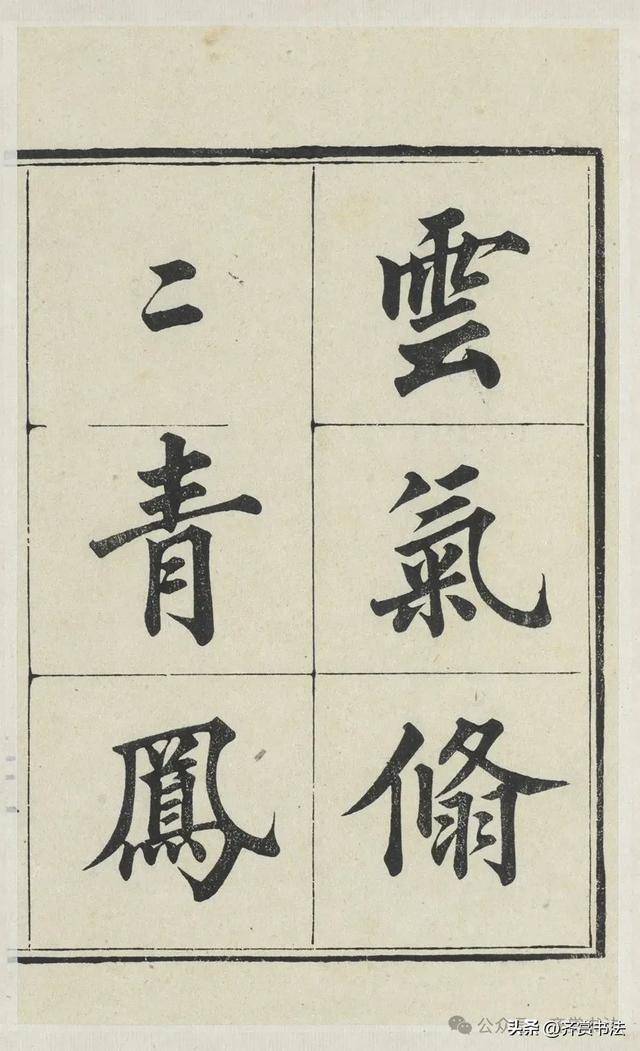 雲氣翛
二青鳳
公众
头条 @齐赏书法